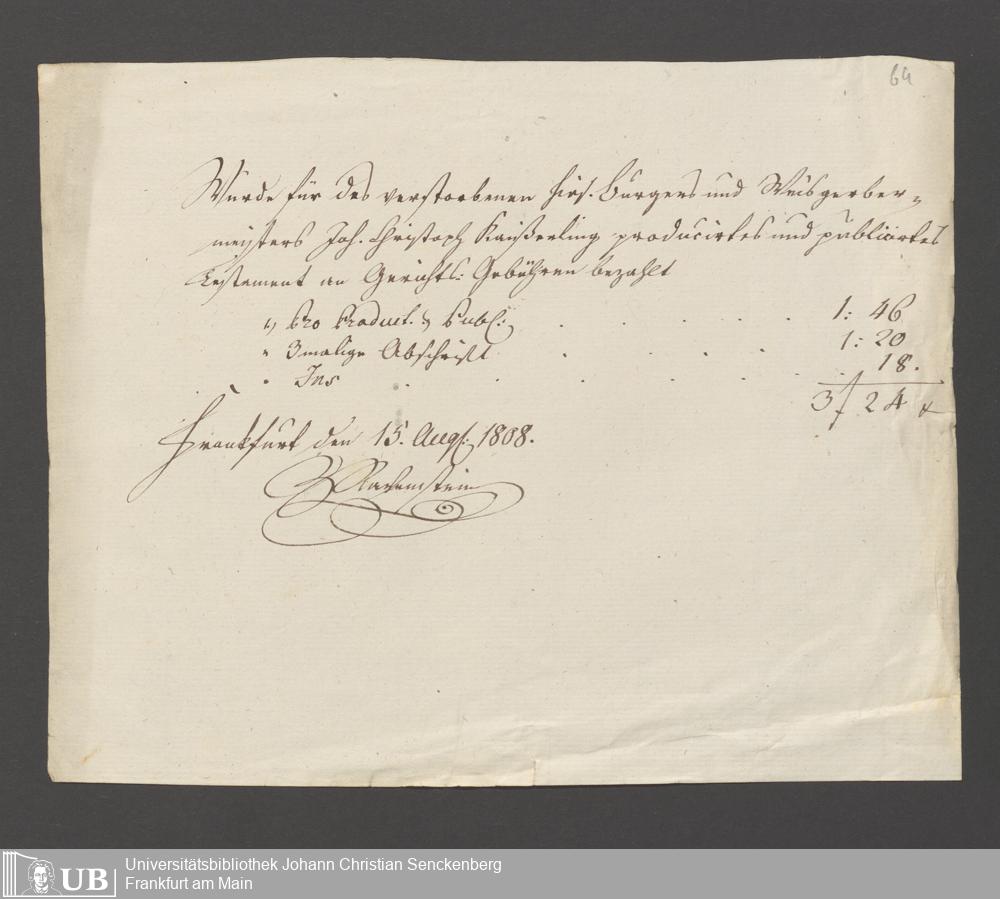 64
Wurde für des verstorbenen hies. Burgers und Weisgerber-
meisters Joh. Christoph Kaißerling producirtes und publicirtes
Testament an Gerichts-Gebühren bezahlt
Pro Product. & Publ: 1: 46
" 3malige Abschrift 1: 20
" Ins 18.
3 f 24 x
Frankfurt den 15. Aug: 1808.
Ravenstein
UB
Universitätsbibliothek Johann Christian Senckenberg
Frankfurt am Main